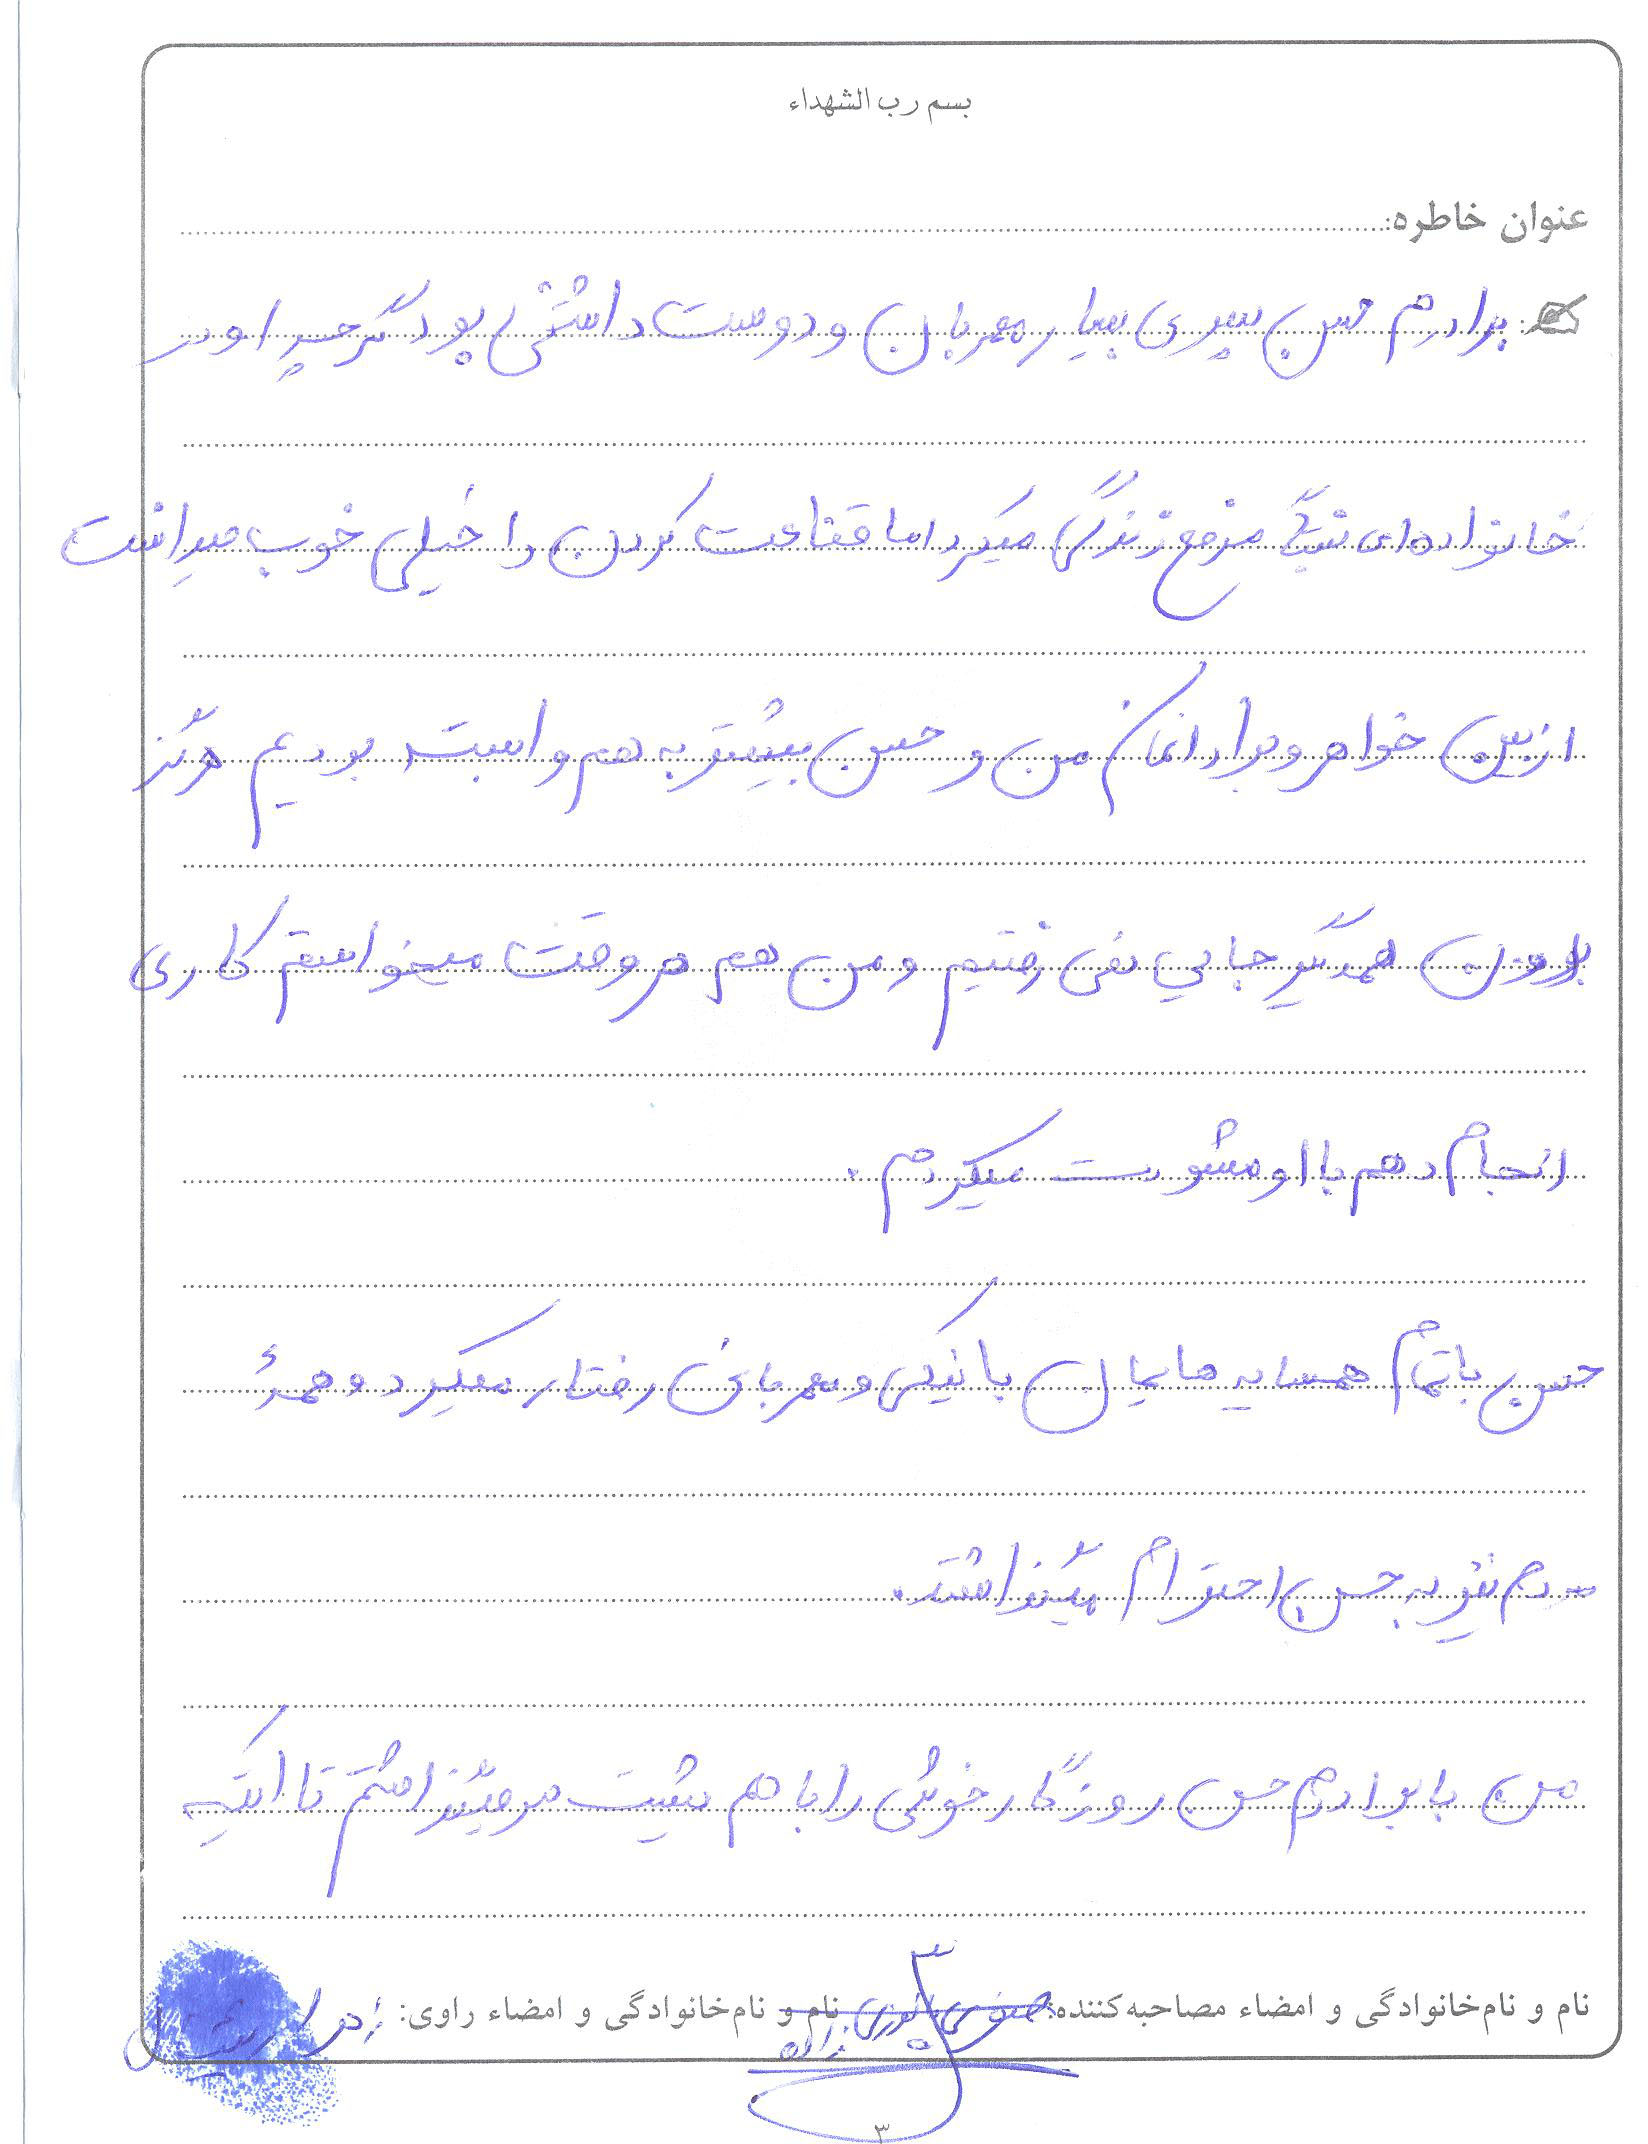 بسم رب الشهداء
عنوان خاطره:
برادرم حسن سپری بسیار مهربان و دوست داشتنی بود گرچه او در
خانواده‌ای نیتگا مرفع زندگی میکرد اما قناعت کردن را خیلی خوب میدانست
از بین خواهر و برادرانمان من و حسن بیشتر به هم وابسته بودیم هرگز
بدون همدیگر جایی نمی رفتیم و من هم هر وقت میخواستم کاری
انجام دهم با او مشورت میکردم .
حسن با تمام همسایه هایمان با نیکی و مهربانی رفتار میکرد و همهٔ
مردم نیز به حسن احترام میگذاشتند.
من با برادرم حسن روزگار خوشی را با هم پشت سر میگذاشتم تا اینکه
نام و نام‌خانوادگی و امضاء مصاحبه‌کننده: نام و نام‌خانوادگی و امضاء راوی:
۳